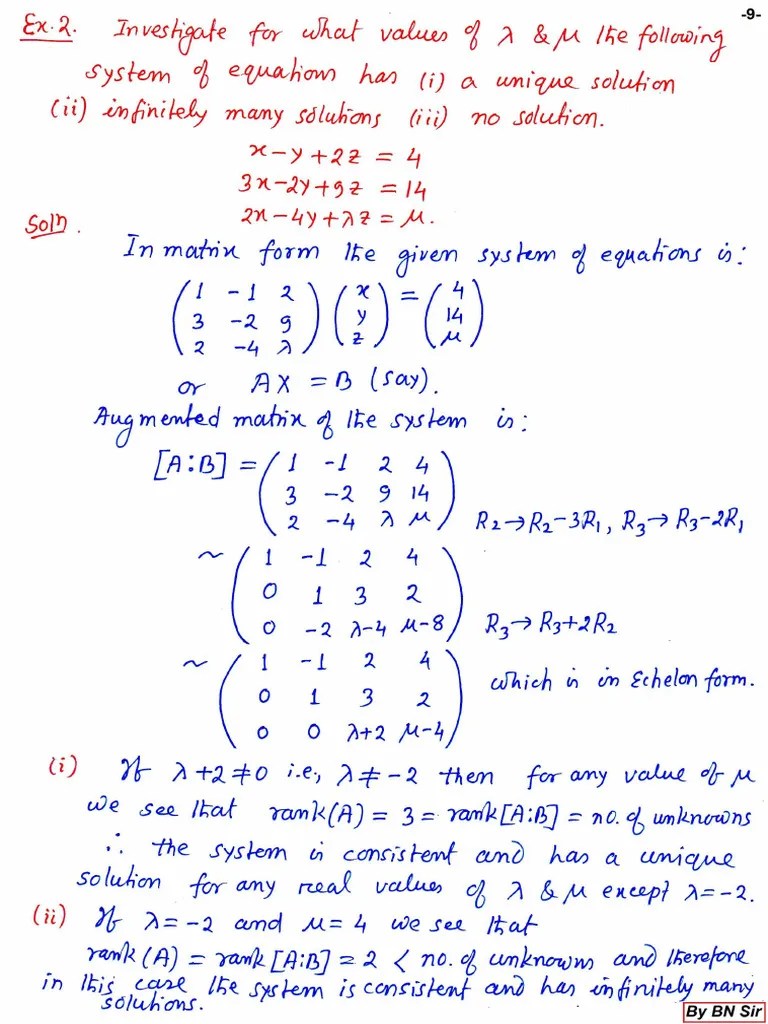 -9-
Ex.2. Investigate for what values of λ & μ the following
system of equations has (i) a unique solution
(ii) infinitely many solutions (iii) no solution.
x-y+2z = 4
3x-2y+9z = 14
2x-4y+λz = μ.
Soln.
In matrix form the given system of equations is:
(1 -1 2) (x) = (4)
(3 -2 9) (y) (14)
(2 -4 λ) (z) (μ)
or AX = B (say).
Augmented matrix of the system is:
[A:B] = (1 -1 2 4)
(3 -2 9 14)
(2 -4 λ μ) R2→R2-3R1, R3→R3-2R1
~ (1 -1 2 4)
(0 1 3 2)
(0 -2 λ-4 μ-8) R3→R3+2R2
~ (1 -1 2 4)
(0 1 3 2) which is in Echelon form.
(0 0 λ+2 μ-4)
(i) If λ+2≠0 i.e., λ≠-2 then for any value of μ
we see that rank(A) = 3 = rank[A:B] = no. of unknowns
∴ the system is consistent and has a unique
solution for any real values of λ & μ except λ=-2.
(ii) If λ=-2 and μ=4 we see that
rank(A) = rank[A:B] = 2 < no. of unknowns and therefore
in this case the system is consistent and has infinitely many
solutions.
By BN Sir